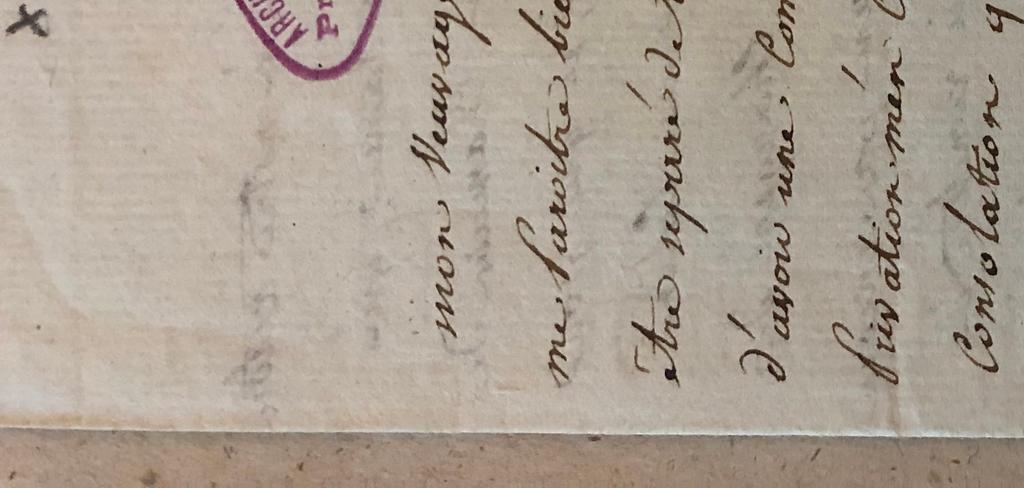 x
ARCH
Pr
mon Veuvag
me Paroitre bie
être séparé de
d'avoir une Con
privation. mén
Consolation q